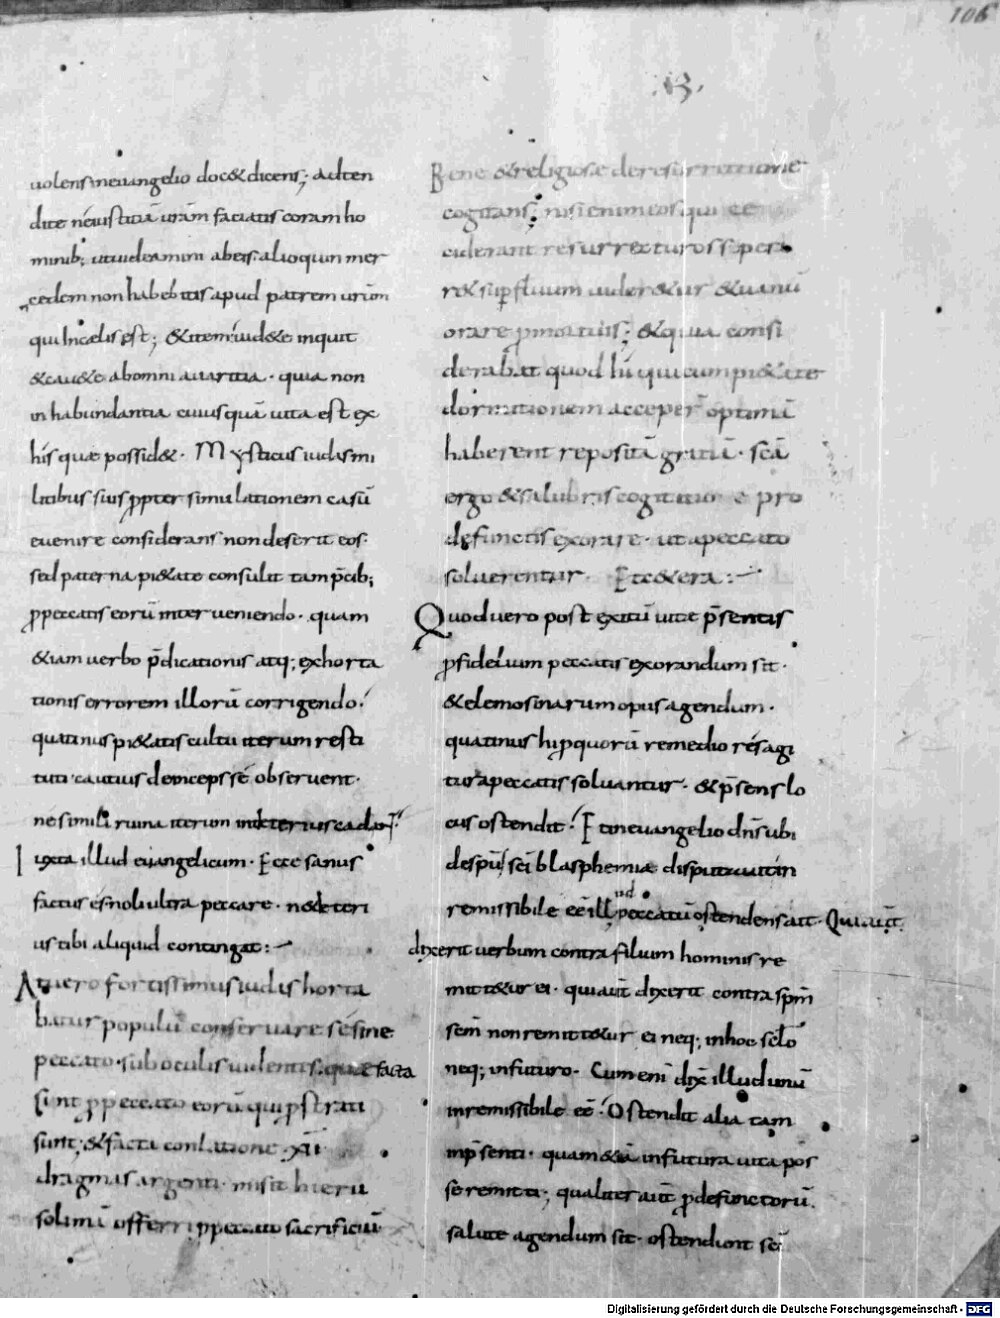 106
B
uolens in euangelio doc& dicens; adten
dite ne iustitiā ur̄am faciatis coram ho
minib; ut uideamini ab eis. alioquin mer
cedem non habebitis apud patrem urūm
qui In caelis est; &item uid&e inquit
&cau&e ab omni auaritia. quia non
in habundantia cuiusquā uita est ex
his quae possid&. Mysticus iudas mi
litibus suis propter simulationem casū
euenire considerans non deserit eos.
sed paterna pi&ate consulit tam p̄cib;
ꝓ peccatis eorū interueniendo. quam
&iam uerbo p̄dicationis atq; exhorta
tionis errorem illorū corrigendo.
quatinus pi&atis cultu iterum resti
tuti cautius deinceps sé obseruent.
né simili ruina iterum in deterius cadant.
Iuxta illud euangelicum. Ecce sanus
factus és noli ultra peccare. ne deteri
us tibi aliquid contingat:
At uero fortissimus iudas horta
batur populū conseruare sé sine
peccato. sub oculis uidentes. quae facta
sunt ꝓ peccato eorū qui ꝓstrati
sunt; &facta conlatione. XII
dragmas argenti. misit hieru
solimā offerri ꝓ peccato sacrificiū
Bene &religiosae de resurrectione
cogitans; nisi enim eos qui ce
ciderant resurrecturos spera
r& suꝑfluum uider&ur &uanū
orare ꝓ mortuis; &quia consi
derabat quod hii qui cum pi&ate
dormitionem acceper̄ optimā
haberent repositā gratiā. sc̄a
ergo &salubris cogitatio e pro
defunctis exorare. ut a peccato
soluerentur. Et c&era:
Quod uero post exitū uitae p̄sentis
ꝓ fidelium peccatis exorandum sit.
&elemosinarum opus agendum.
quatinus hi ꝓ quorū remedio rés agi
tur a peccatis soluantur. &p̄sens lo
cus ostendit. Et in euangelio dn̄s ubi
de spū sc̄i blasphemiae disputauit in
remissibile eē illud peccatū ostendens ait. Qui aut̄
dixerit uerbum contra filium hominis re
mitt&ur ei. qui aut̄ dixerit contra sp̄m
sc̄m non remitt&ur ei neq; in hoc sc̄lo
neq; in futuro. Cum eni dix̄ illud unū
inremissibile eē. Ostendit alia tam
in p̄senti. quam &iā in futura uita pos
se remitti; qualiter aut̄ ꝓ defunctorū
salute agendum sit. ostendunt sc̄i
Digitalisierung gefördert durch die Deutsche Forschungsgemeinschaft - DFG